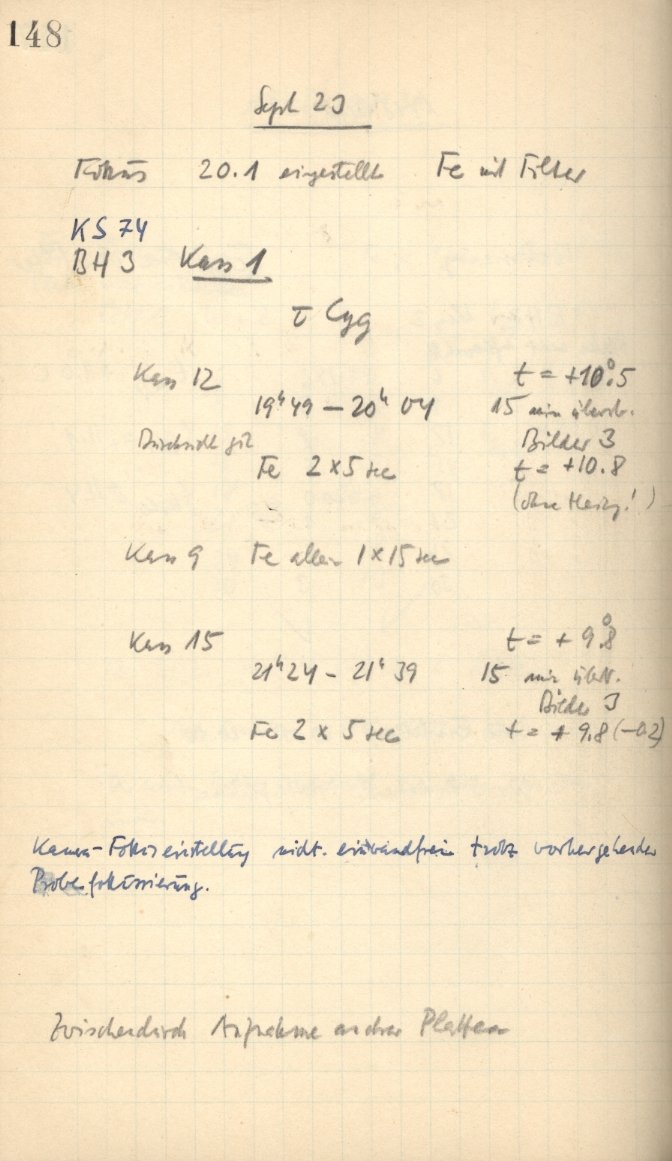 148
Sept 23
Fokus 20.1 eingestellt Fe mit Filter
KS 74
BH 3 Kass 1
τ Cyg
Kass 12 t = +10°.5
19ʰ49 – 20ʰ04 15 min überb.
Durchsicht gut Bilder 3
Fe 2×5 sec t = +10.8
(ohne Heizg!)
Kass 9 Fe allein 1×15 sec
Kass 15 t = +9°.8
21ʰ24 – 21ʰ39 15 min
Bilder 3
Fe 2 × 5 sec t = +9.8 (–0.2)
Kamera-Fokuseinstellung nicht einwandfrei trotz vorhergehender
Probefokussierung.
Zwischendurch Aufnahme andrer Platten